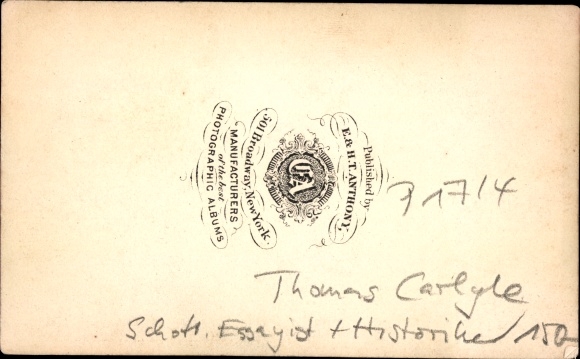 Published by
E. & H.T. ANTHONY,
USA
501 Broadway, New York.
MANUFACTURERS
of the best
PHOTOGRAPHIC ALBUMS
1714
Thomas Carlyle
Schott. Essayist + Historiker